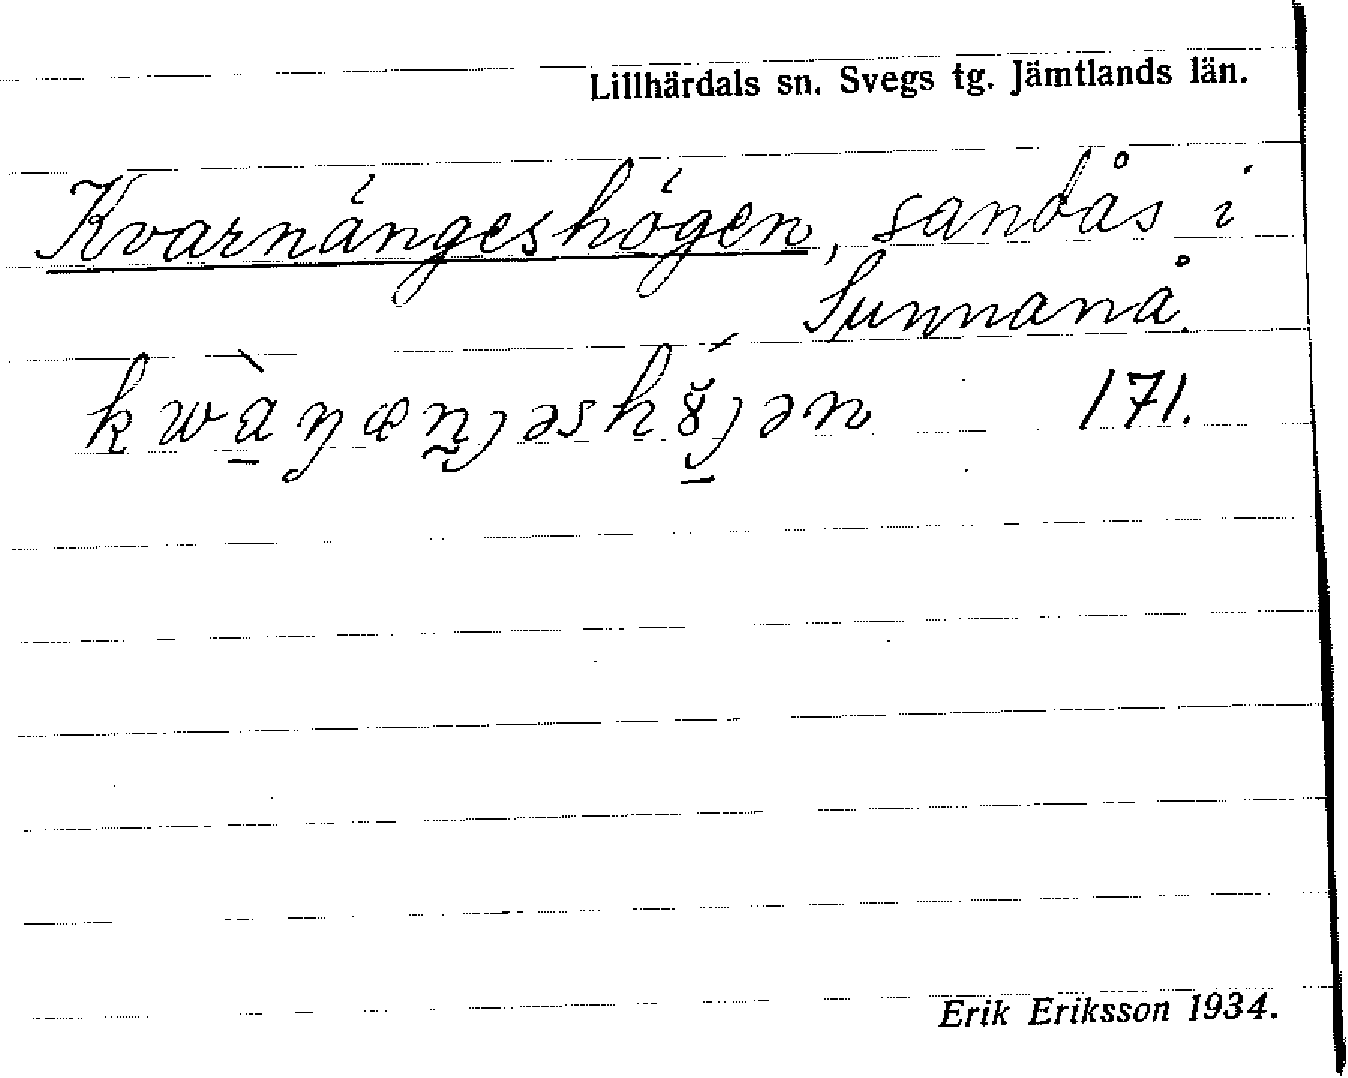 Lillhärdals sn. Svegs tg. Jämtlands län.
Kvarnängeshögen, sandås i
Sunnanå.
171.
Erik Eriksson 1934.